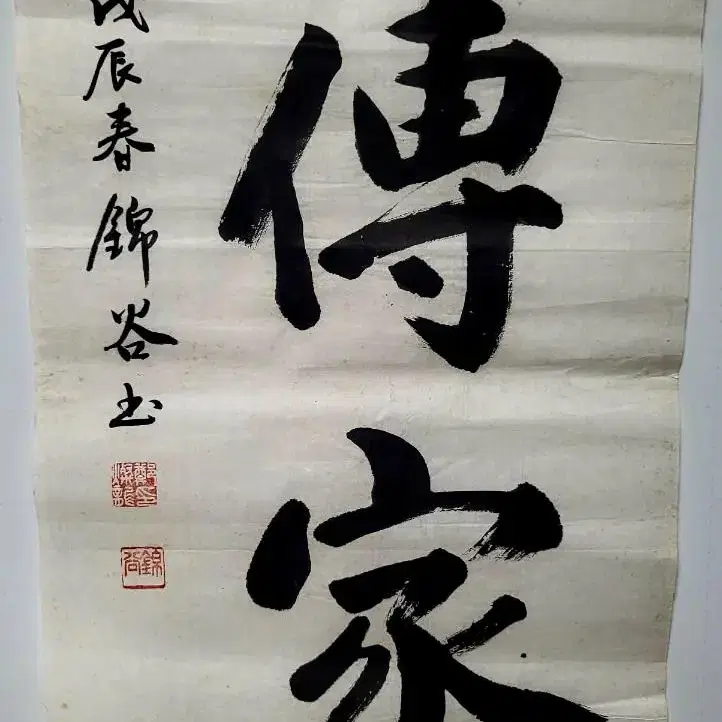 傳家
戊辰春錦谷书
錦谷